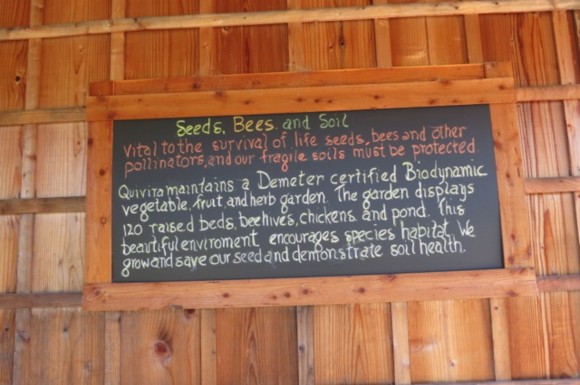 Seeds, Bees, and Soil
Vital to the survival of life seeds, bees and other
pollinators, and our fragile soils must be protected.
Quivira maintains a Demeter certified Biodynamic
vegetable, fruit, and herb garden. The garden displays
120 raised beds, beehives, chickens, and pond. This
beautiful enviroment encourages species habitat. We
grow and save our seed and demonstrate soil health.